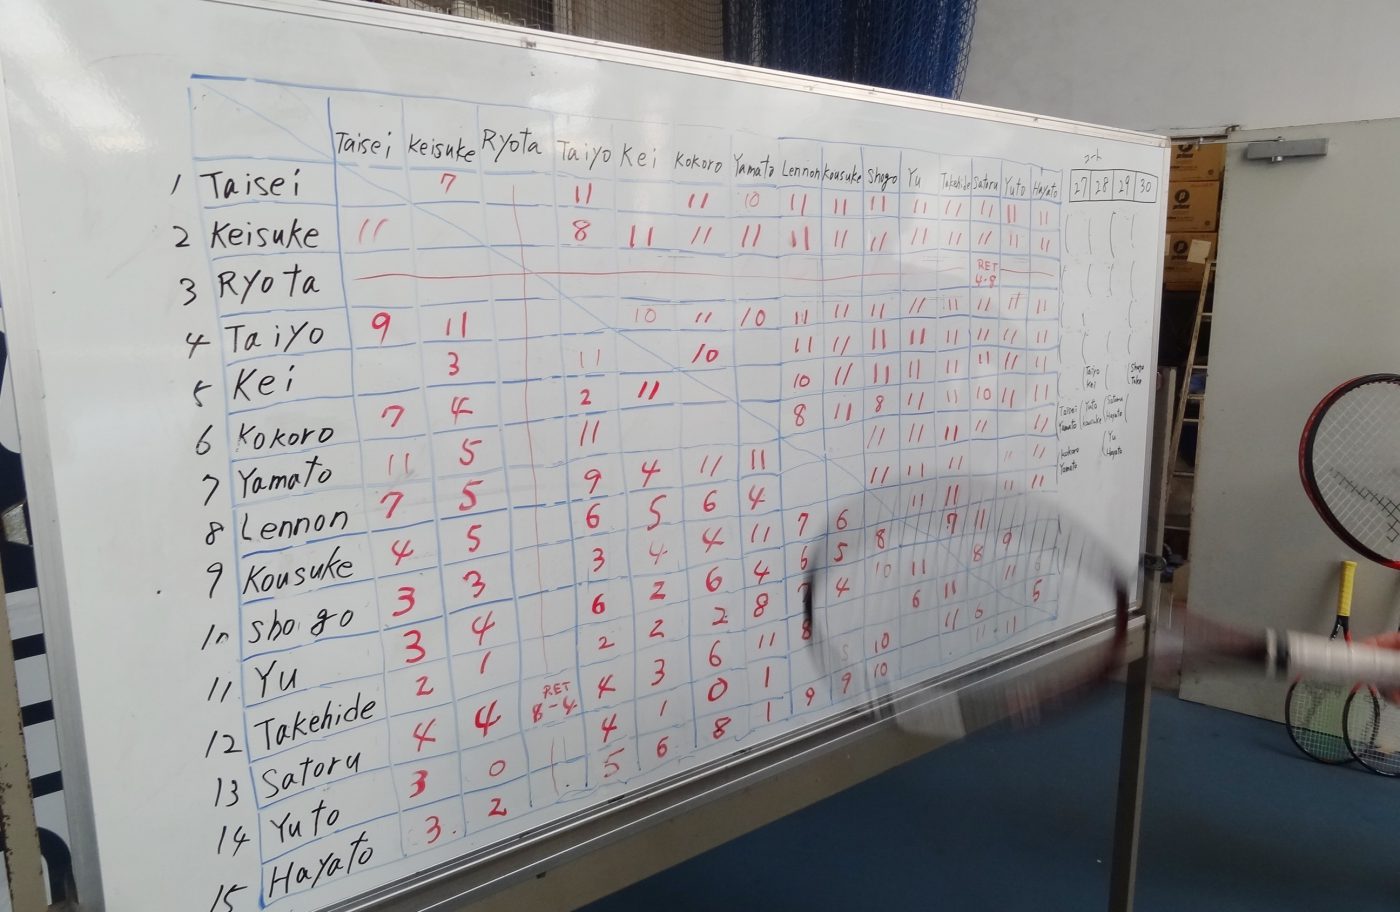 Taisei Keisuke Ryota Taiyo Kei Kokoro Yamato Lennon Kousuke Shogo Yu Takehide Satoru Yuto Hayato
1 Taisei 7 11 11 10 11 11 11 11 11 11 11 11
2 Keisuke 11 8 11 11 11 11 11 11 11 11 11 11 11
3 Ryota RET 4-8
4 Taiyo 9 11 10 11 10 11 11 11 11 11 11 11 11
5 Kei 3 11 10 11 11 11 11 11 11 11 11
6 Kokoro 7 4 2 11 10 11 11 11 11 11 11 11
7 Yamato 11 5 11 8 11 8 11 11 10 11 11
8 Lennon 7 5 9 4 11 11 11 11 11 11 11
9 Kousuke 4 5 6 5 6 4 11 11 11 11 11
10 Shogo 3 3 3 4 4 11 7 6 11 11
11 Yu 3 4 6 2 6 4 6 5 8 7 11 9
12 Takehide 2 1 2 2 2 8 4 10 11 8 11
13 Satoru 4 4 RET 8-4 4 3 6 11 8 6 11 5
14 Yuto 3 0 4 1 0 1 10 11 6
15 Hayato 3 2 5 6 8 1 9 9 10 11 11
27 28 29 30
Taiyo Kei
Shogo Take
Taisei Yamato
Yuto Kousuke
Satoru Hayato
Kokoro Yamato
Yu Hayato